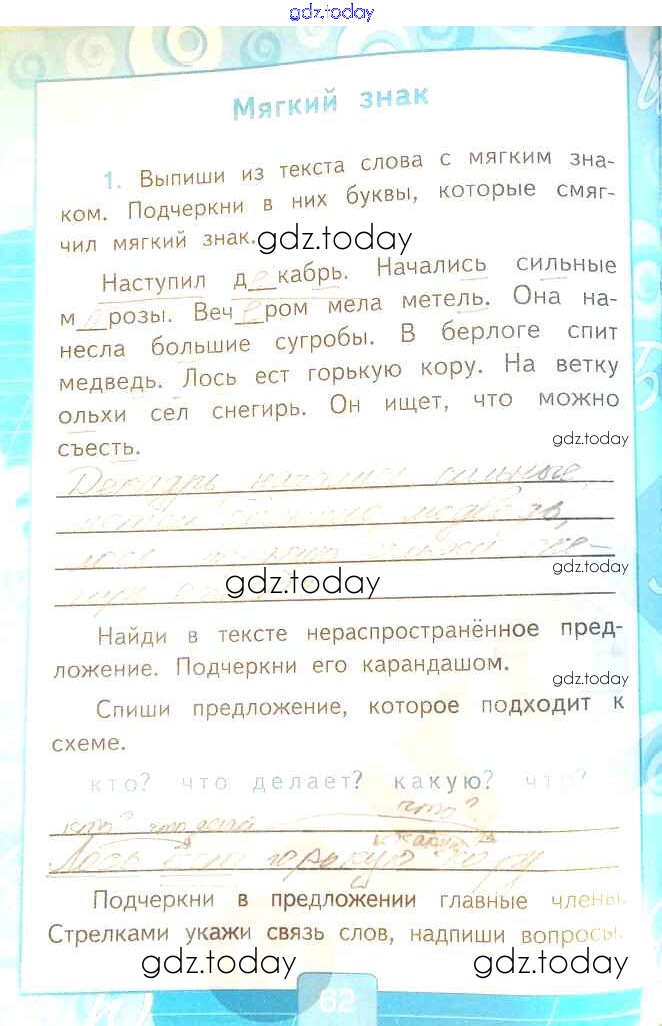 gdz.today
Мягкий знак
1. Выпиши из текста слова с мягким зна-
ком. Подчеркни в них буквы, которые смяг-
чил мягкий знак.
gdz.today
Наступил д е кабрь. Начались сильные
м о розы. Веч е ром мела метель. Она на-
несла большие сугробы. В берлоге спит
медведь. Лось ест горькую кору. На ветку
ольхи сел снегирь. Он ищет, что можно
съесть.
gdz.today
Декабрь начались сильные,
метель большие, медведь,
лось горькую ольхи сне-
gdz.today
gdz.today
Найди в тексте нераспространённое пред-
ложение. Подчеркни его карандашом.
gdz.today
Спиши предложение, которое подходит к
схеме.
кто? что делает? какую? что?
кто? что делает что?
какую
Лось ест горькую кору
Подчеркни в предложении главные члены.
Стрелками укажи связь слов, надпиши вопросы.
gdz.today
gdz.today
62